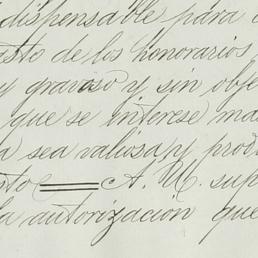 dispensable para
sto de los honorarios
y gravoso y sin obje
que se interese ma
a sea valiosa y prod
sto = A. U. sup
la autorización que